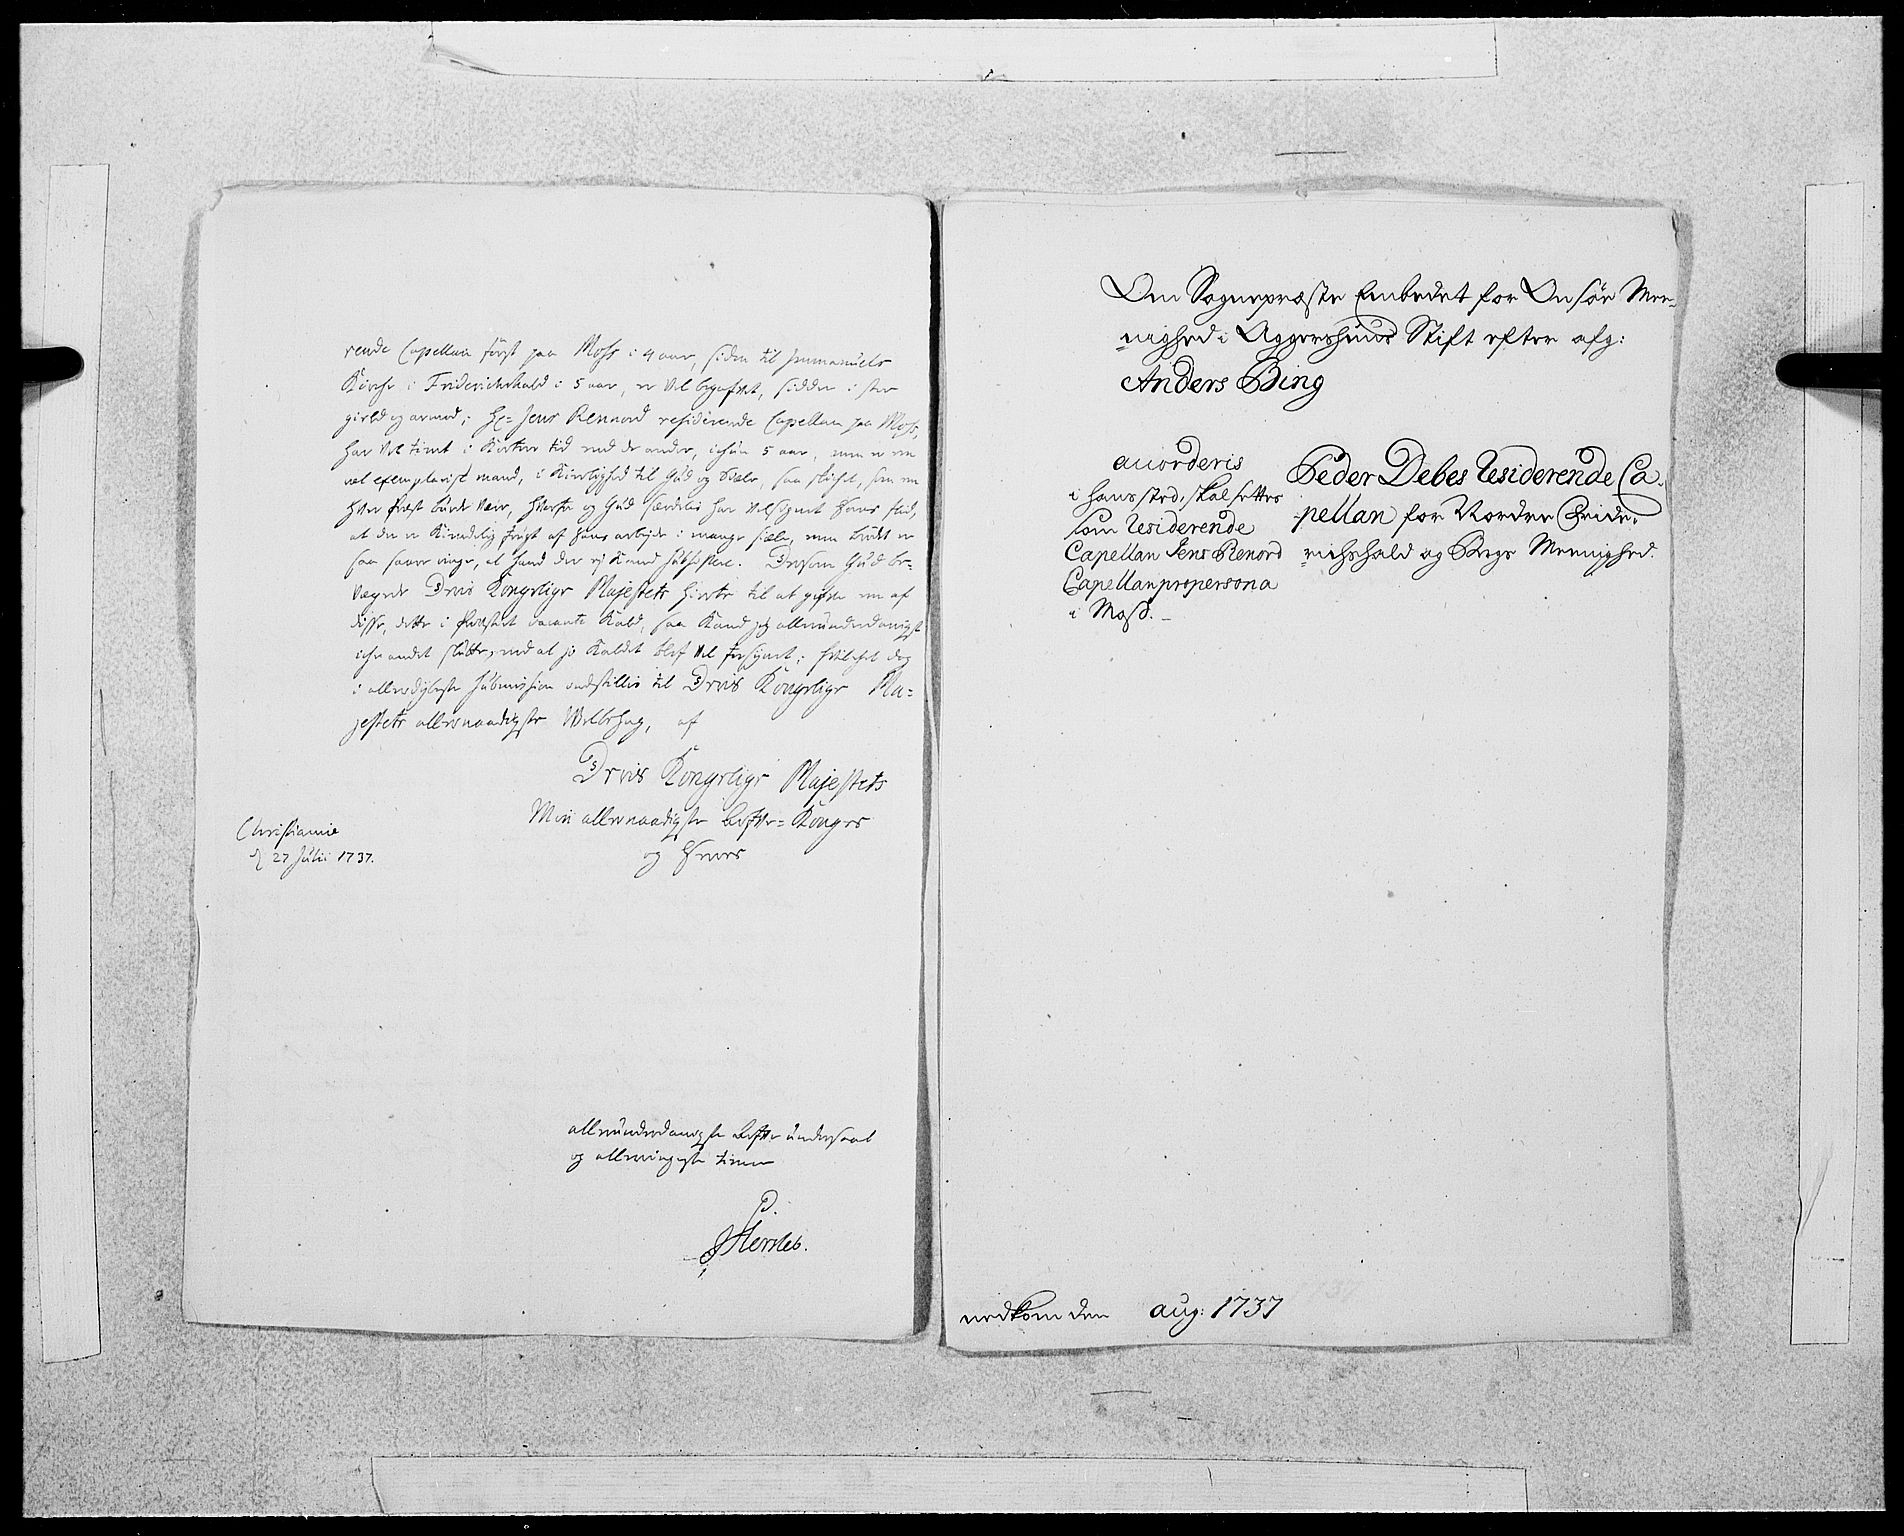 rende Capellan först paa Moss i 4 aar, siden til Immanuels
Kirche i Friderichshald i 5 aar, er vel begafvet, sidder i stor
gield og armod; Hr= Jens Rennord residerende Capellan paa Moss,
har vel tient i Kortere tid end de andre, ichun 5 aar, men er en
ret exemplarisk mand, i Kierlighed til Gud og siæle, saa skichet, som en
hver Præst burde være, hvorfor og Gud særdelis har velsignet hans flid,
at der er Kiendelig frugt af hans arbejde i mange siæle, men brödet er
saa saare ringe, at hand der ej Kand subsistere. Dersom Gud be-
vægede Deris Kongelige Majestets hierte til at gifve en af
disse, dette i Præstet vacante Kald, saa Kand jeg allerunderdanigst
iche andet slutte, end at jo Kaldet blef vel forsÿnet; hvilchet dog
i allerdÿbeste submission indstillis til Deris Kongelige Ma=
jestets allernaadigste Velbehag, af
Deris Kongelige Majestets
Min allernaadigste Arfve= Konges
og Herres
Christianie
d 27 Julii 1737.
allerunderdanigste Arfve undersaat
og allerringeste tiener
P.
Hersleb.
Om Sognepræste Embedet for Onsöe Me=
=nighed i Aggershuus Stift efter afg:
Anders Bing
anorderis
i hans sted, skal settes
som Residerende
Capellan Jens Renord
Capellan pro persona
i Moss.
Peder Debes Residerende Ca=
pellan for Nordre Fride=
richshald og Bergs Menighed.
nedkom den aug: 1737